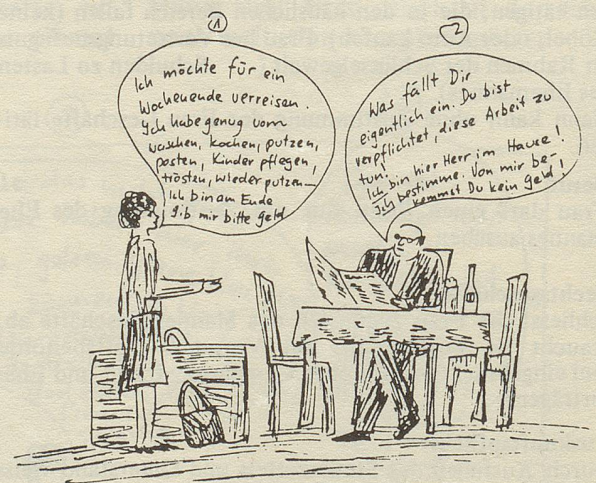 1
Ich möchte für ein
Wochenende verreisen.
Ich habe genug vom
waschen, kochen, putzen,
posten, Kinder pflegen,
trösten, wieder putzen—
Ich bin am Ende
Gib mir bitte Geld
2
Was fällt Dir
eigentlich ein. Du bist
verpflichtet, diese Arbeit zu
tun!
Ich bin hier Herr im Hause!
Ich bestimme. Von mir be-
kommst Du kein Geld!